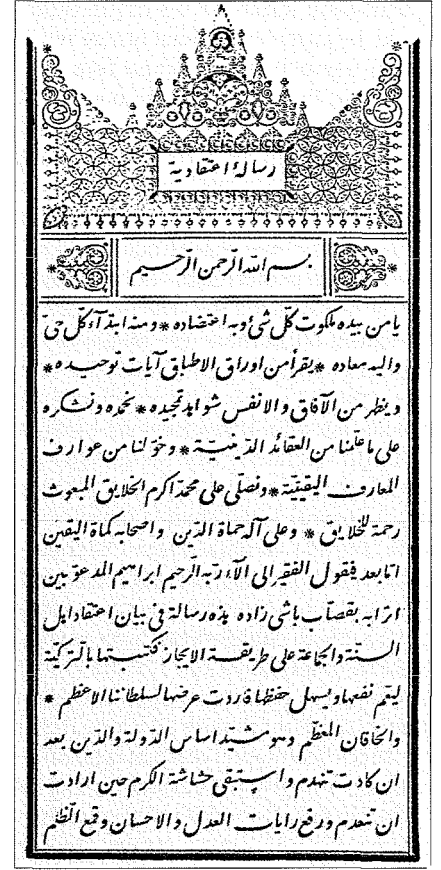 رسالۀ اعتقادية
بسم الله الرّحمن الرّحيم
يا من بيده ملكوت كلّ شئ وبه اعتضاده * ومنه ابتدآء كلّ حىّ
واليه معاده * يقرأ من اوراق الاطباق آيات توحيده *
وينظر من الآفاق والانفس شواهد تمجيده * نحمده ونشكره
على ما علّمنا من العقائد الدّينيّة * وخوّلنا من عوارف
المعارف اليقينيّة * ونصلّى على محمّد اكرم الخلايق المبعوث
رحمة للخلايق * وعلى آله حماة الدّين واصحابه كماة اليقين
امّا بعد فيقول الفقير الى الآء ربّه الرّحيم ابراهيم المدعوّ بين
اترابه بقصّاب باشى زاده هذه رسالة فى بيان اعتقاد اهل
السنّة والجماعة على طريقة الايجاز كتبتها بالتركيّة
ليتمّ نفعها ويسهل حفظها اردت عرضها لسلطاننا الاعظم *
والخاقان المعظّم وهو مشيّد اساس الدّولة والدّين بعد
ان كادت تنهدم واستبقى حشاشة الكرم حين ارادت
ان تنعدم ورفع رايات العدل والاحسان وقمع الظّلم